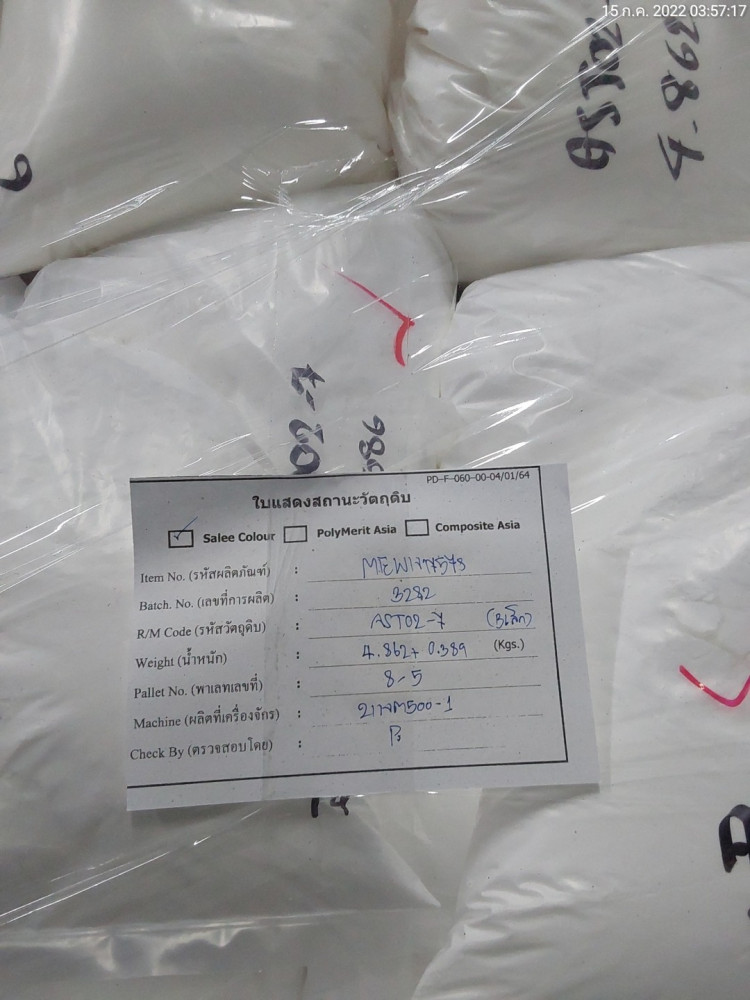 15 ก.ค. 2022 03:57:17
PD-F-060-00-04/01/64
ใบแสดงสถานะวัตถุดิบ
Salee Colour PolyMerit Asia Composite Asia
Item No. (รหัสผลิตภัณฑ์) :
Batch. No. (เลขที่การผลิต) : 3282
R/M Code (รหัสวัตถุดิบ) : AST02-7 (3เล็ก)
Weight (น้ำหนัก) : 4.862+ 0.389 (Kgs.)
Pallet No. (พาเลทเลขที่) : 8-5
Machine (ผลิตที่เครื่องจักร) :
Check By (ตรวจสอบโดย) :